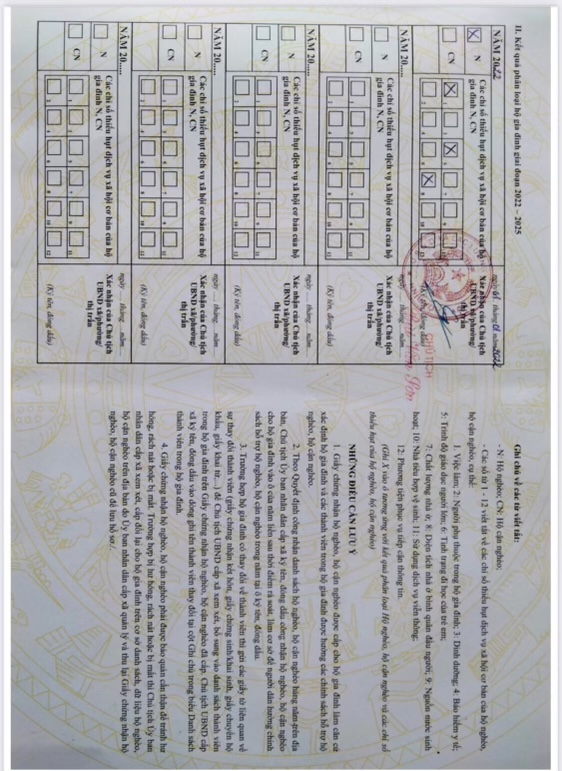 II. Kết quả phân loại hộ gia đình giai đoạn 2022 – 2025
NĂM 2022
N
CN
Các chỉ số thiếu hụt dịch vụ xã hội cơ bản của hộ
gia đình N, CN
Xác nhận của Chủ tịch
UBND xã/phường/
thị trấn
(Ký tên, đóng dấu)
CHỦ TỊCH
NĂM 20.....
N
CN
Các chỉ số thiếu hụt dịch vụ xã hội cơ bản của hộ
gia đình N, CN
ngày .... tháng... năm.....
Xác nhận của Chủ tịch
UBND xã/phường/
thị trấn
(Ký tên, đóng dấu)
NĂM 20.....
N
CN
Các chỉ số thiếu hụt dịch vụ xã hội cơ bản của hộ
gia đình N, CN
ngày .... tháng... năm.....
Xác nhận của Chủ tịch
UBND xã/phường/
thị trấn
(Ký tên, đóng dấu)
NĂM 20.....
N
CN
Các chỉ số thiếu hụt dịch vụ xã hội cơ bản của hộ
gia đình N, CN
ngày .... tháng... năm.....
Xác nhận của Chủ tịch
UBND xã/phường/
thị trấn
(Ký tên, đóng dấu)
NĂM 20.....
N
CN
Các chỉ số thiếu hụt dịch vụ xã hội cơ bản của hộ
gia đình N, CN
ngày .... tháng... năm.....
Xác nhận của Chủ tịch
UBND xã/phường/
thị trấn
(Ký tên, đóng dấu)
Ghi chú về các từ viết tắt:
- N: Hộ nghèo; CN: Hộ cận nghèo.
- Các số từ 1 - 12 viết tắt về các chỉ số thiếu hụt dịch vụ xã hội cơ bản của hộ nghèo,
hộ cận nghèo, cụ thể:
1. Việc làm; 2: Người phụ thuộc trong hộ gia đình; 3: Dinh dưỡng; 4: Bảo hiểm y tế;
5: Trình độ giáo dục người lớn; 6: Tình trạng đi học của trẻ em;
7: Chất lượng nhà ở; 8: Diện tích nhà ở bình quân đầu người; 9: Nguồn nước sinh
hoạt; 10: Nhà tiêu hợp vệ sinh; 11: Sử dụng dịch vụ viễn thông;
12: Phương tiện phục vụ tiếp cận thông tin.
(Ghi X vào ô tương ứng với kết quả phân loại Hộ nghèo, hộ cận nghèo và các chỉ số
thiếu hụt của hộ nghèo, hộ cận nghèo)
NHỮNG ĐIỀU CẦN LƯU Ý
1. Giấy chứng nhận hộ nghèo, hộ cận nghèo được cấp cho hộ gia đình làm căn cứ
xác định hộ gia đình và các thành viên trong hộ gia đình được hưởng các chính sách hỗ trợ hộ
nghèo, hộ cận nghèo.
2. Theo Quyết định công nhận danh sách hộ nghèo, hộ cận nghèo hàng năm trên địa
bàn, Chủ tịch Ủy ban nhân dân cấp xã ký tên, đóng dấu công nhận hộ nghèo, hộ cận nghèo
cho hộ gia đình vào ô của năm liền sau thời điểm rà soát, làm cơ sở để người dân hưởng chính
sách hỗ trợ hộ nghèo, hộ cận nghèo trong năm tại ô ký tên, đóng dấu.
3. Trường hợp hộ gia đình có thay đổi về thành viên thì gửi các giấy tờ liên quan về
sự thay đổi thành viên (giấy chứng nhận kết hôn, giấy chứng sinh/khai sinh, giấy chuyển hộ
khẩu, giấy khai tử...) để Chủ tịch UBND cấp xã xem xét, bổ sung vào danh sách thành viên
trong hộ gia đình trên Giấy chứng nhận hộ nghèo, hộ cận nghèo đã cấp. Chủ tịch UBND cấp
xã ký tên, đóng dấu vào dòng ghi tên thành viên thay đổi tại cột Ghi chú trong biểu Danh sách
thành viên trong hộ gia đình.
4. Giấy chứng nhận hộ nghèo, hộ cận nghèo phải được bảo quản cẩn thận để tránh hư
hỏng, rách nát hoặc bị mất. Trường hợp bị hư hỏng, rách nát hoặc bị mất thì Chủ tịch Ủy ban
nhân dân cấp xã xem xét, cấp đổi lại cho hộ gia đình trên cơ sở danh sách, dữ liệu hộ nghèo,
hộ cận nghèo trên địa bàn do Ủy ban nhân dân cấp xã quản lý và thu lại Giấy chứng nhận hộ
nghèo, hộ cận nghèo cũ để lưu hồ sơ./.